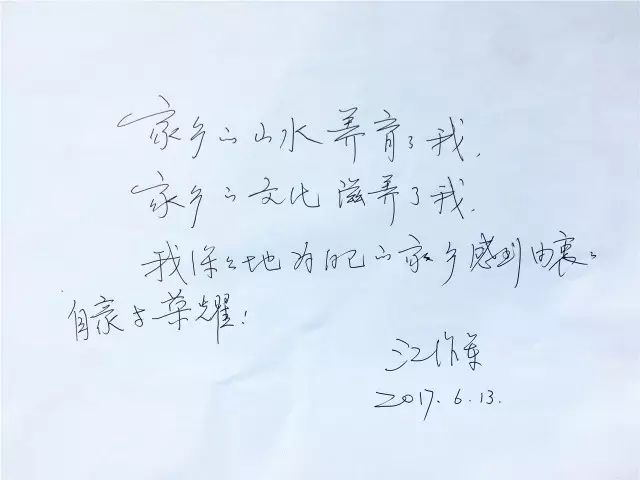 家乡的山水养育了我，
家乡的文化滋养了我，
我深深地为自己的家乡感到由衷的
自豪与荣耀！
江作军
2017.6.13.